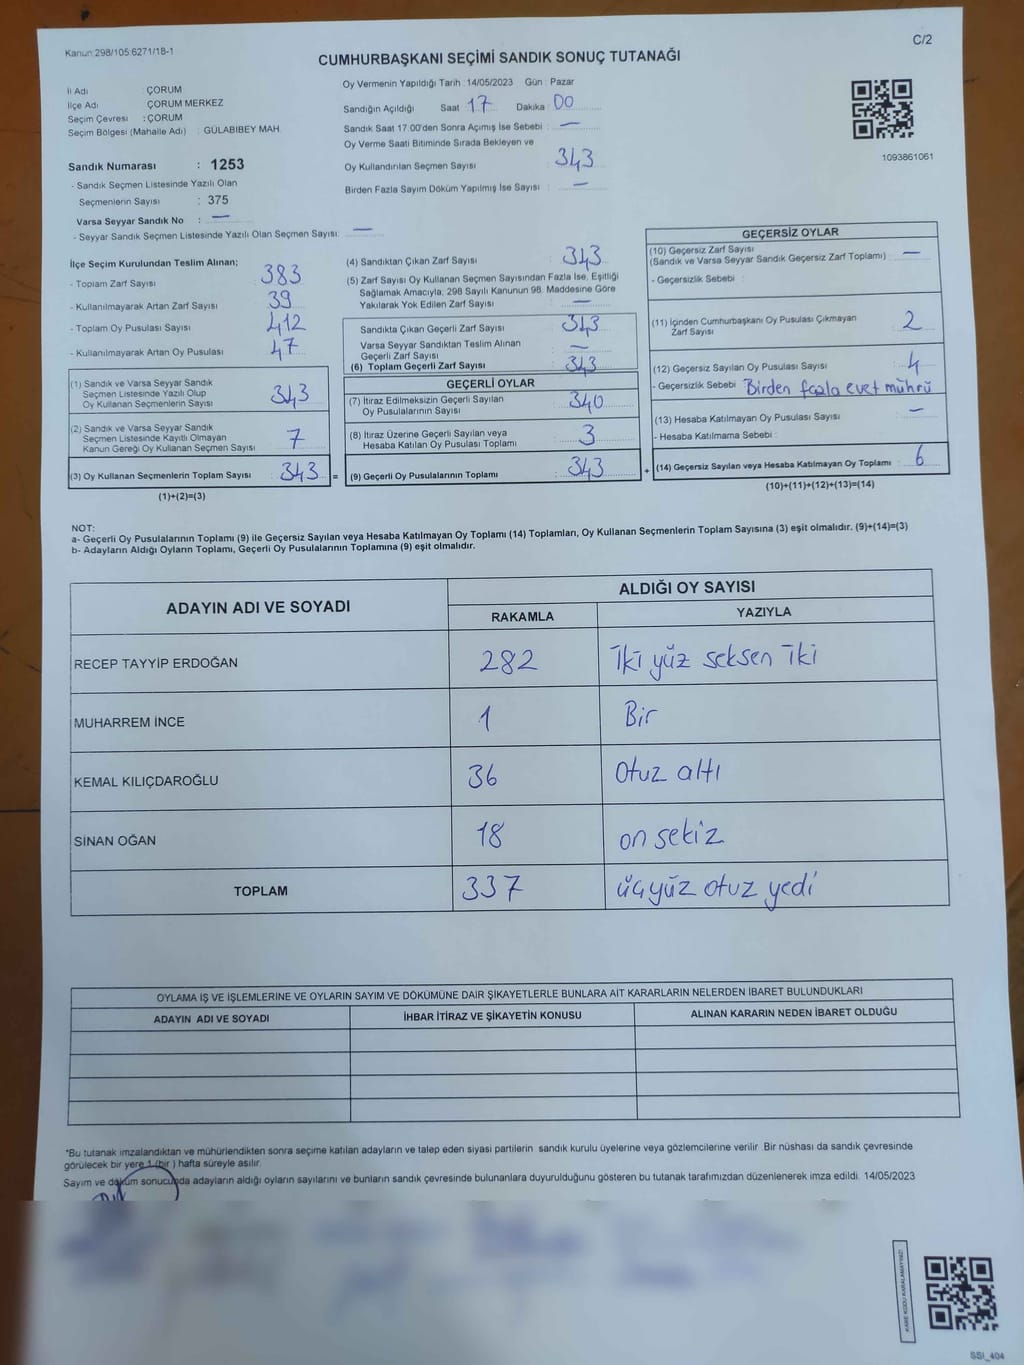 Kanun:298/105:6271/18-1
C/2
CUMHURBAŞKANI SEÇİMİ SANDIK SONUÇ TUTANAĞI
İl Adı : ÇORUM
İlçe Adı : ÇORUM MERKEZ
Seçim Çevresi : ÇORUM
Seçim Bölgesi (Mahalle Adı) : GÜLABİBEY MAH.
Sandık Numarası : 1253
- Sandık Seçmen Listesinde Yazılı Olan
Seçmenlerin Sayısı : 375
Varsa Seyyar Sandık No : —
- Seyyar Sandık Seçmen Listesinde Yazılı Olan Seçmen Sayısı: —
Oy Vermenin Yapıldığı Tarih : 14/05/2023 Gün : Pazar
Sandığın Açıldığı Saat 17 Dakika 00
Sandık Saat 17:00'den Sonra Açımış İse Sebebi : —
Oy Verme Saati Bitiminde Sırada Bekleyen ve
Oy Kullandırılan Seçmen Sayısı : 343
Birden Fazla Sayım Döküm Yapılmış İse Sayısı : —
1093861061
İlçe Seçim Kurulundan Teslim Alınan;
- Toplam Zarf Sayısı : 383
- Kullanılmayarak Artan Zarf Sayısı : 39
- Toplam Oy Pusulası Sayısı : 412
- Kullanılmayarak Artan Oy Pusulası : 47
(1) Sandık ve Varsa Seyyar Sandık
Seçmen Listesinde Yazılı Olup
Oy Kullanan Seçmenlerin Sayısı : 343
(2) Sandık ve Varsa Seyyar Sandık
Seçmen Listesinde Kayıtlı Olmayan
Kanun Gereği Oy Kullanan Seçmen Sayısı : 7
(3) Oy Kullanan Seçmenlerin Toplam Sayısı : 343 =
(1)+(2)=(3)
(4) Sandıktan Çıkan Zarf Sayısı : 343
(5) Zarf Sayısı Oy Kullanan Seçmen Sayısından Fazla İse, Eşitliği
Sağlamak Amacıyla, 298 Sayılı Kanunun 98. Maddesine Göre
Yakılarak Yok Edilen Zarf Sayısı : —
Sandıkta Çıkan Geçerli Zarf Sayısı : 343
Varsa Seyyar Sandıktan Teslim Alınan
Geçerli Zarf Sayısı : —
(6) Toplam Geçerli Zarf Sayısı : 343
GEÇERLİ OYLAR
(7) İtiraz Edilmeksizin Geçerli Sayılan
Oy Pusulalarının Sayısı : 340
(8) İtiraz Üzerine Geçerli Sayılan veya
Hesaba Katılan Oy Pusulası Toplamı : 3
(9) Geçerli Oy Pusulalarının Toplamı : 343 +
GEÇERSİZ OYLAR
(10) Geçersiz Zarf Sayısı
(Sandık ve Varsa Seyyar Sandık Geçersiz Zarf Toplamı) : —
- Geçersizlik Sebebi :
(11) İçinden Cumhurbaşkanı Oy Pusulası Çıkmayan
Zarf Sayısı : 2
(12) Geçersiz Sayılan Oy Pusulası Sayısı : 4
- Geçersizlik Sebebi : Birden fazla evet mührü
(13) Hesaba Katılmayan Oy Pusulası Sayısı : —
- Hesaba Katılmama Sebebi :
(14) Geçersiz Sayılan veya Hesaba Katılmayan Oy Toplamı : 6
(10)+(11)+(12)+(13)=(14)
NOT:
a- Geçerli Oy Pusulalarının Toplamı (9) ile Geçersiz Sayılan veya Hesaba Katılmayan Oy Toplamı (14) Toplamları, Oy Kullanan Seçmenlerin Toplam Sayısına (3) eşit olmalıdır. (9)+(14)=(3)
b- Adayların Aldığı Oyların Toplamı, Geçerli Oy Pusulalarının Toplamına (9) eşit olmalıdır.
ADAYIN ADI VE SOYADI
ALDIĞI OY SAYISI
RAKAMLA YAZIYLA
RECEP TAYYİP ERDOĞAN 282 İki yüz seksen iki
MUHARREM İNCE 1 Bir
KEMAL KILIÇDAROĞLU 36 Otuz altı
SİNAN OĞAN 18 on sekiz
TOPLAM 337 üçyüz otuz yedi
OYLAMA İŞ VE İŞLEMLERİNE VE OYLARIN SAYIM VE DÖKÜMÜNE DAİR ŞİKAYETLERLE BUNLARA AİT KARARLARIN NELERDEN İBARET BULUNDUKLARI
ADAYIN ADI VE SOYADI İHBAR İTİRAZ VE ŞİKAYETİN KONUSU ALINAN KARARIN NEDEN İBARET OLDUĞU
*Bu tutanak imzalandıktan ve mühürlendikten sonra seçime katılan adayların ve talep eden siyasi partilerin sandık kurulu üyelerine veya gözlemcilerine verilir. Bir nüshası da sandık çevresinde
görülecek bir yere 1 (bir ) hafta süreyle asılır.
Sayım ve döküm sonucunda adayların aldığı oyların sayılarını ve bunların sandık çevresinde bulunanlara duyurulduğunu gösteren bu tutanak tarafımızdan düzenlenerek imza edildi. 14/05/2023
KARE KODU KARALAMAYINIZ!
SSI_404